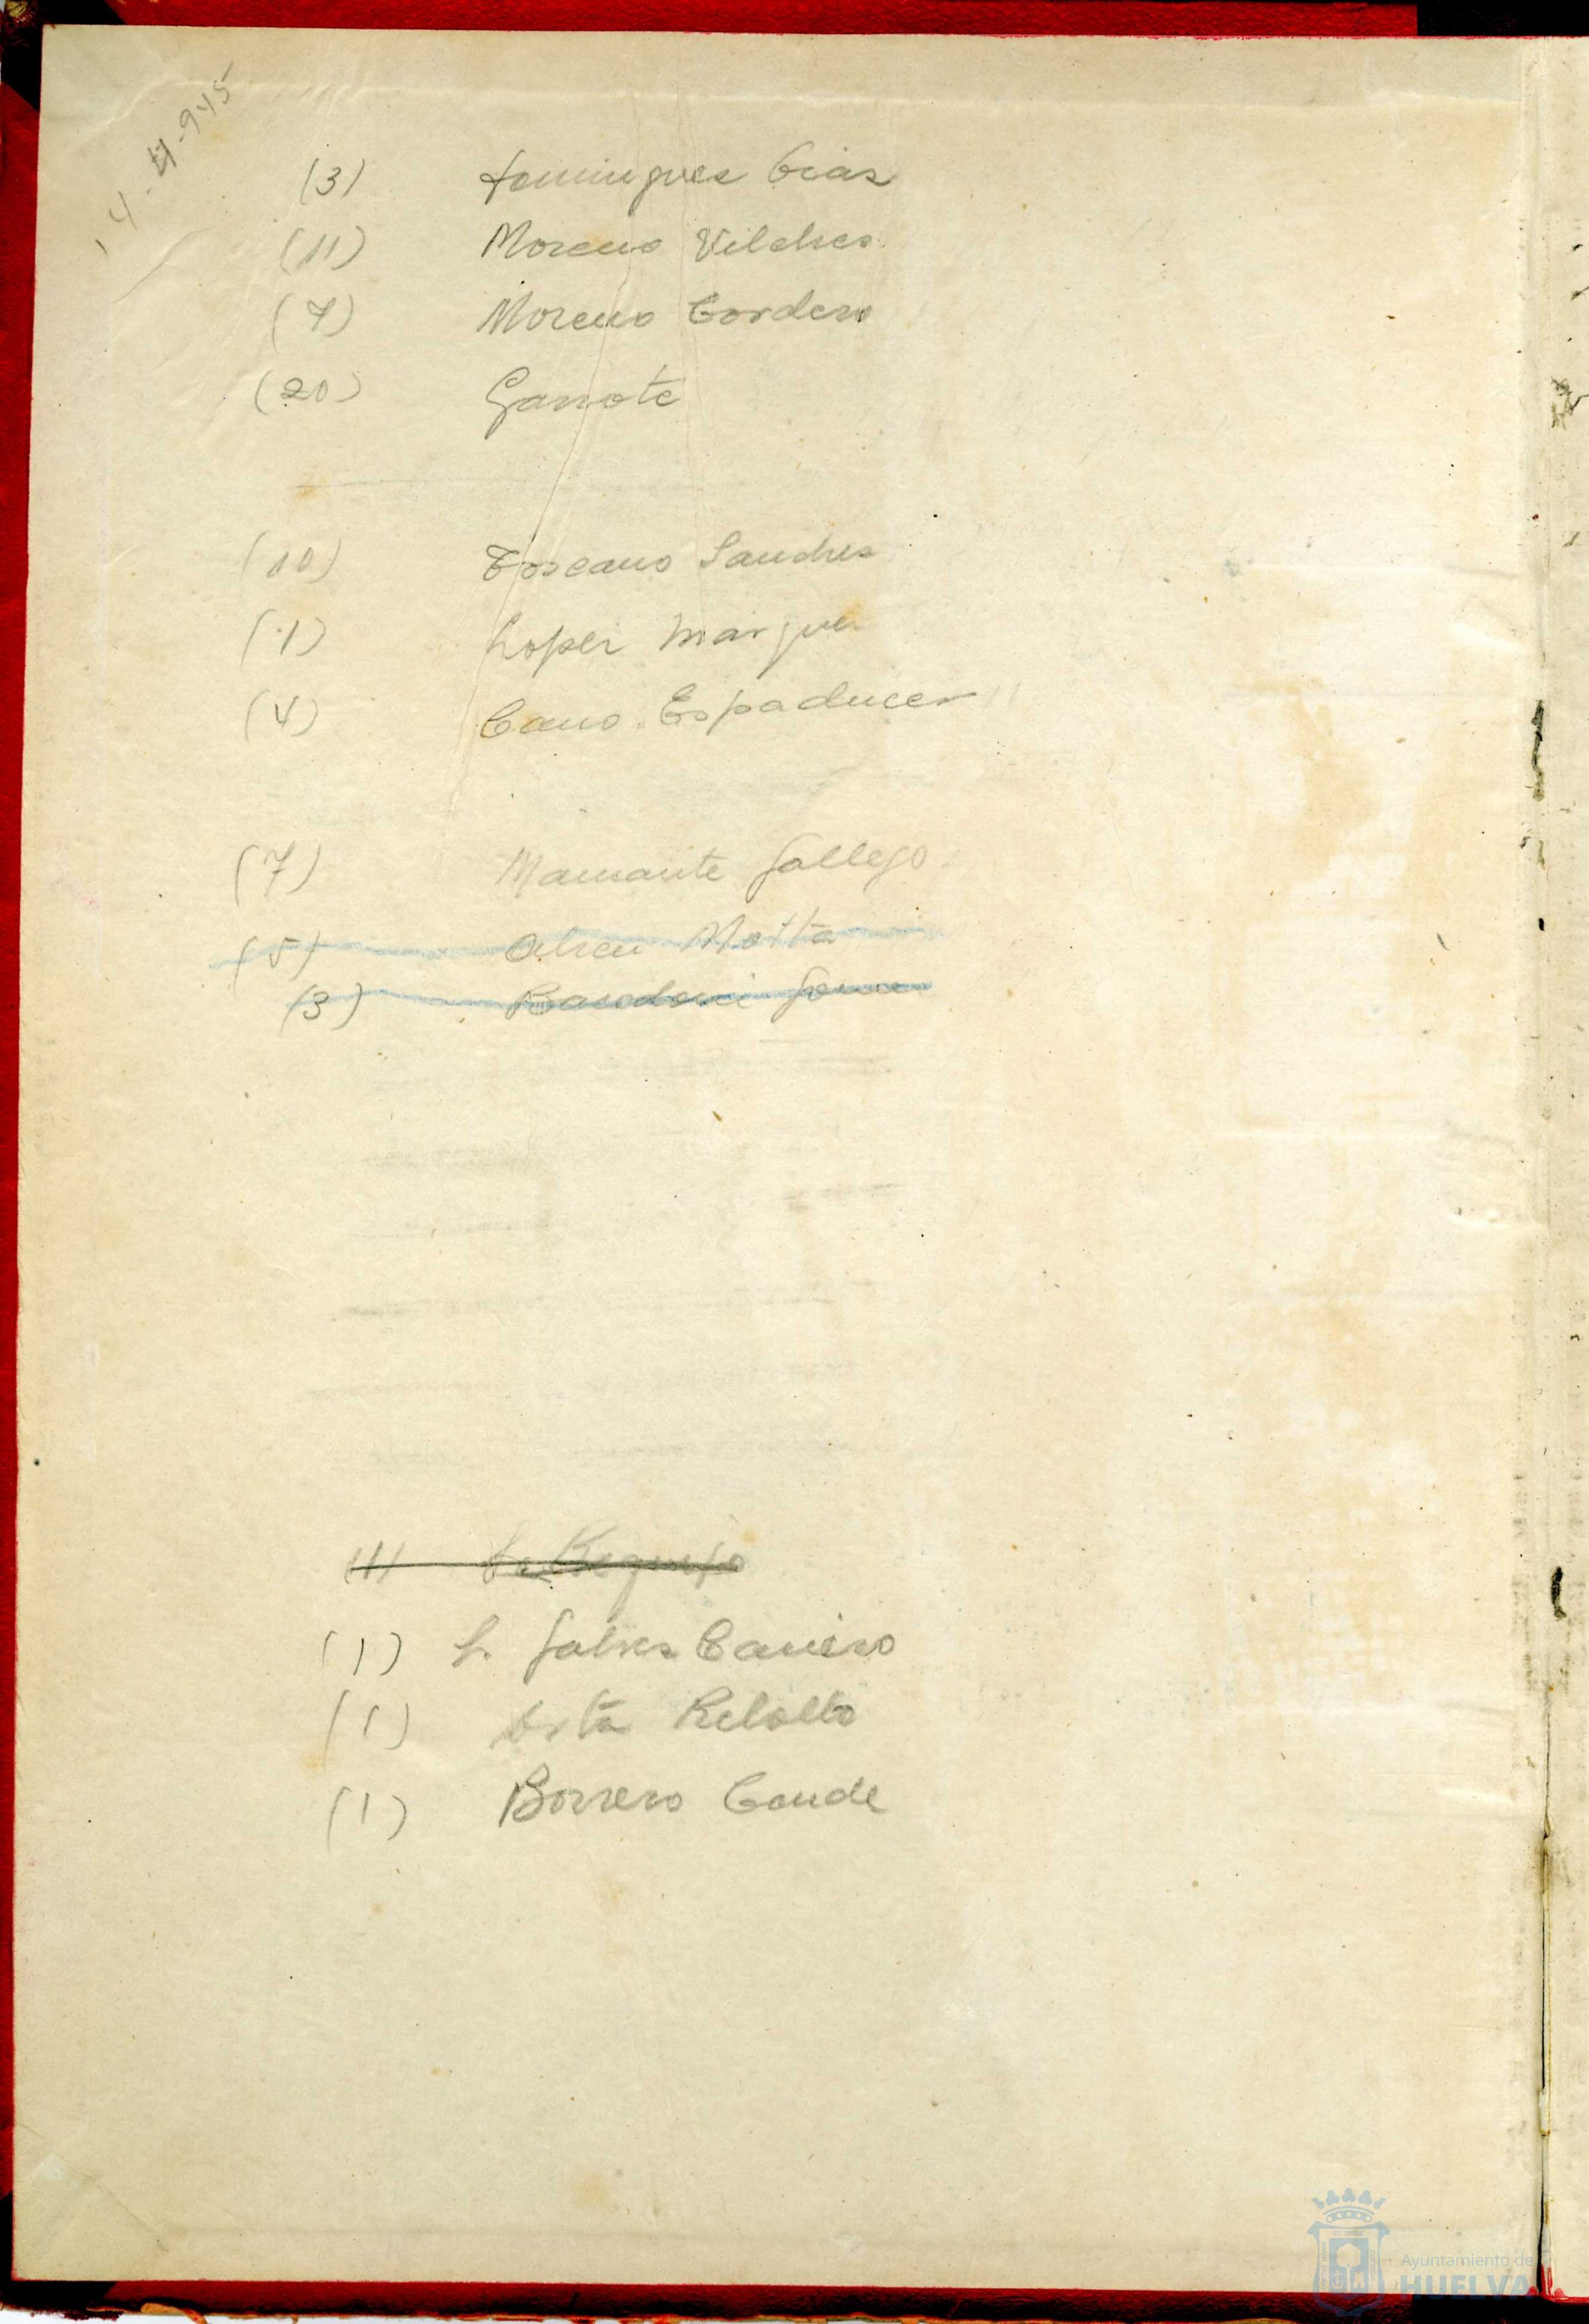 14-4-945
(3) Dominguez Gias
(11) Moreno Vilches
(7) Moreno Cordero
(20) Garrote
(10) Toscano Sanchez
(1) Lopez Marquez
(4) Cano Espaducer
(7) Mamante Gallego
(5) Abreu Motta
(3) Gomez
(1) Requejo
(1) L. Galvez Canero
(1) Orta Rebollo
(1) Borrero Conde
Ayuntamiento de
HUELVA